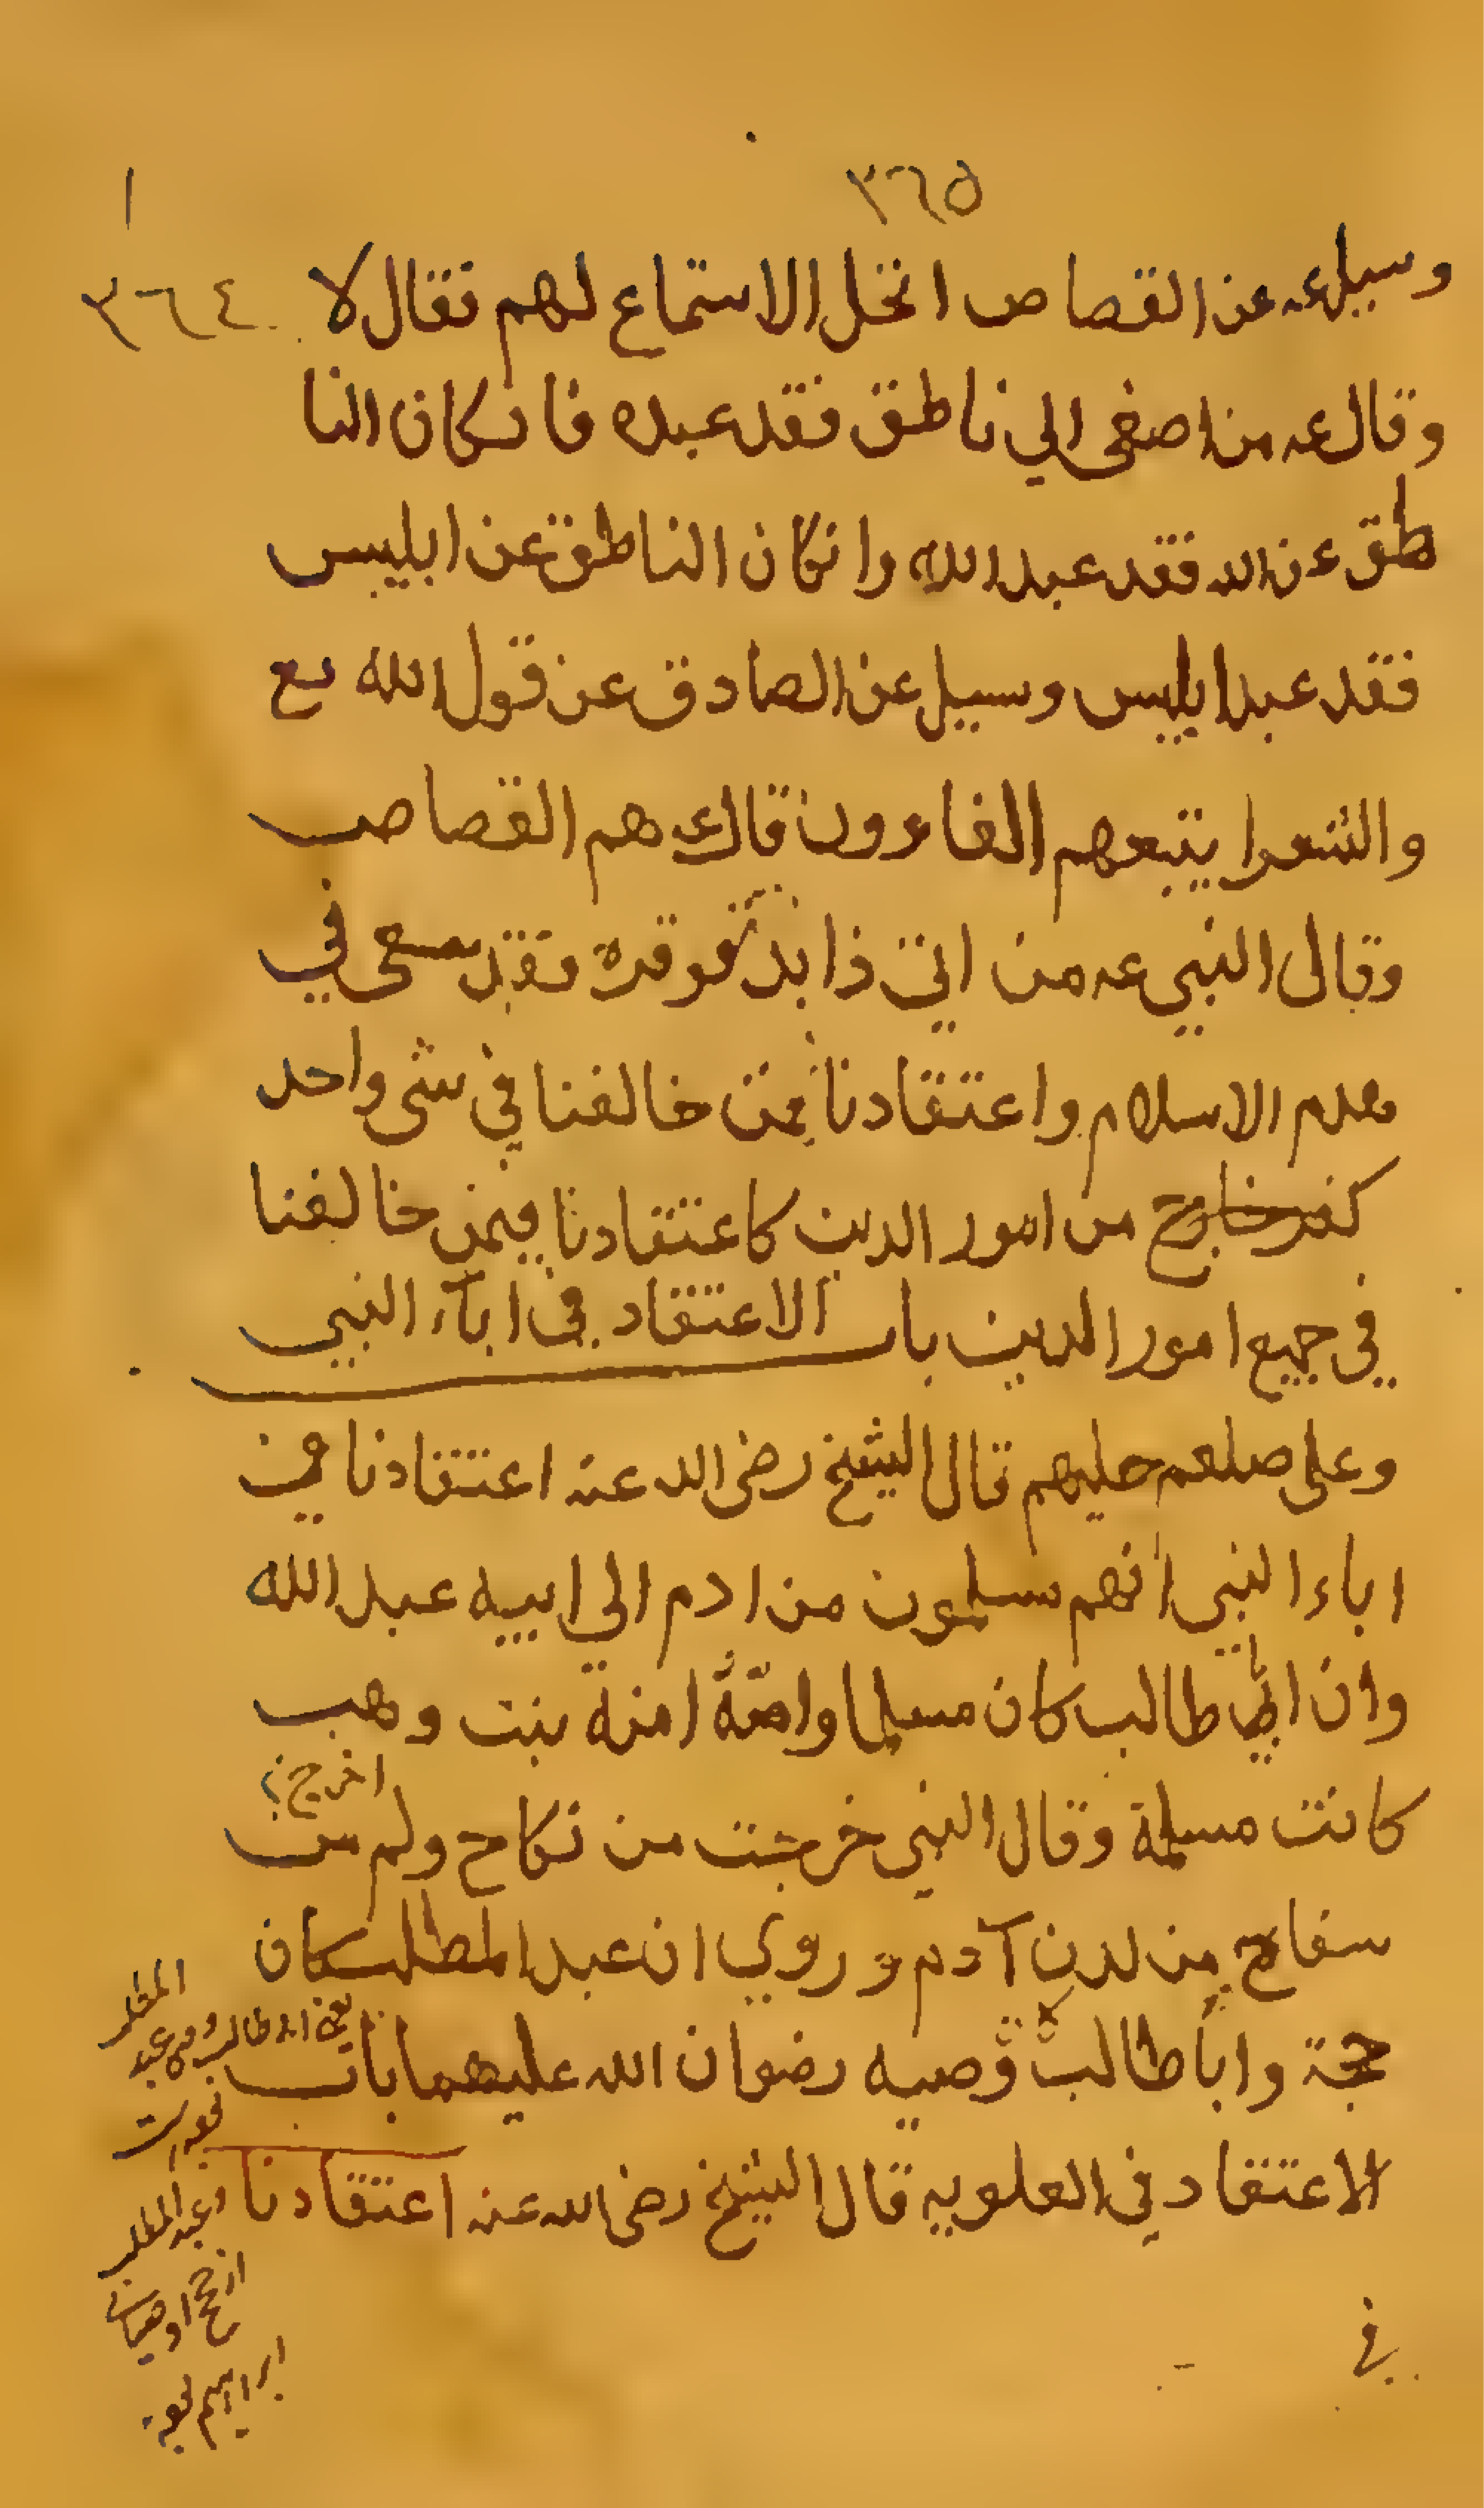 ٣٦٥
١
٣٦٤
وسيل عه عن القصاص اتحل الاستماع لهم فقال لا
وقال عه من اصغى الي ناطق فقد عبده فانكان النا
طق عن الله فقد عبد الله وانكان الناطق عن ابليس
فقد عبد ابليس وسيل عن الصادق عن قول الله تع
والشعرا يتبعهم الغاوون قال ع هم القصاص
وقال النبي عه من اتي ذا بدعة فوقره فقد سعى في
هدم الاسلام واعتقادنا فيمن خالفنا في شى واحد
كفر خارج من امور الدين كاعتقادنا فيمن خالفنا
في جميع امور الدين باب الاعتقاد في اباء النبي
وعلى صلعم عليهم قال الشيخ رضى الله عنه اعتقادنا في
اباء النبي انهم مسلمون من ادم الي ابيه عبد الله
وان ابي طالب كان مسلما وامّهُ امنة بنت وهب
كانت مسلمة وقال النبي خرجت من نكاح ولم من
اخرج
سفاح من لدن آدم و روي ان عبد المطلب كان
حجة واباً طالب وصيه رضوان الله عليهما باب
الاعتقاد في العلويه قال الشيخ رضى الله عنه اعتقادنا
في